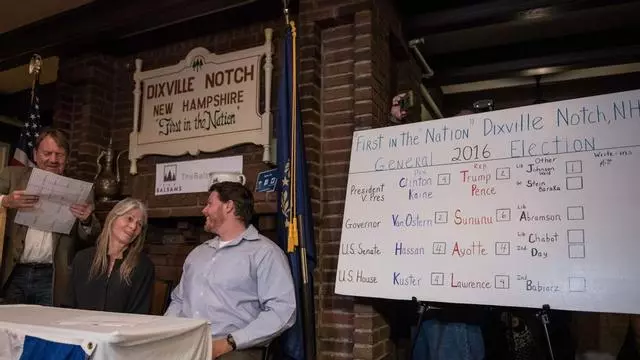 DIXVILLE NOTCH
NEW HAMPSHIRE
"First in the Nation"
THE BALSAMS
The Balsams
FIRST IN THE "NATION" DIXVILLE NOTCH, NH
GENERAL 2016 ELECTION
PRESIDENT
V. PRES
Clinton 4
Kaine
REP
Trump 2
Pence
Other
Lib Johnson
Weld
Stein
Baraka
Write-ins
Mitt
Governor Van Ostern 2 Sununu 6 Lib Abramson
U.S. Senate Hassan 4 Ayotte 4 Lib Chabot
Ind. Day
U.S. House Kuster 4 Lawrence 4 Ind Babiarz